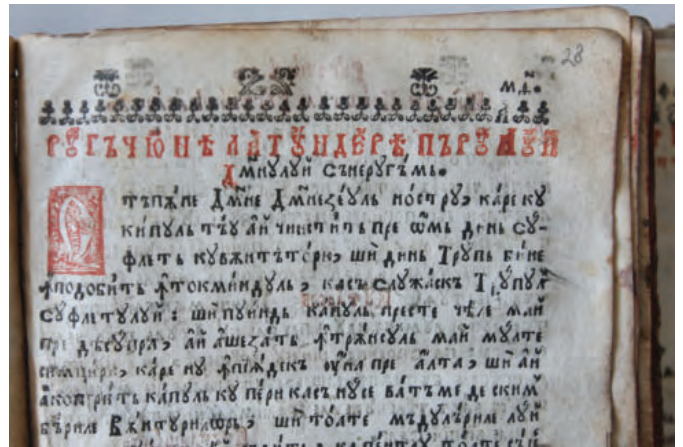 28
м҃д.
РꙋГЪЧЮНѢ ЛА ТꙋНДЕРѢ ПЪРꙋЛꙋЙ
Дмⷩꙋлꙋй сънеругъмь.
Стъпѫне Дмⷩе Дмⷩеꙁеꙋль ностру, каре ку
кипуль тъу ай чинстить пре ѡмь, динь су-
флеть кувѫнтъторю, ши динь Трупь бине
ꙟподобить ꙟтокминдуль, касъ служаскъ Трупул
суфлетулуй: ши пуинд капуль престе челе май
пре дѣсупра, ай ашеꙁать ꙟтрѫнсуль май мулте
симцири, каре ну ꙟпїѧдекъ уна пре алта, ши ай
акоперить капуль ку пери касъ нусе ватъме де ским
бъриле Вѫнтурилѡрь, ши тоате мъдулъриле луй